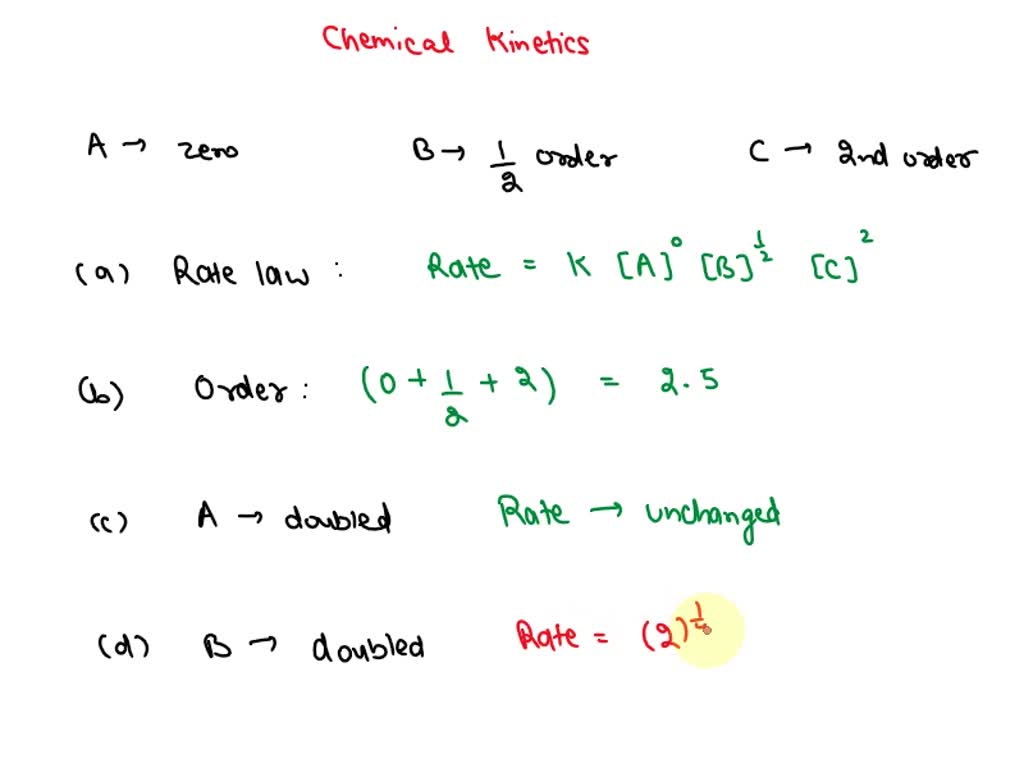 Chemical Kinetics
A → zero B → 1/2 order C → 2nd order
(a) Rate law : Rate = K [A]^0 [B]^1/2 [C]^2
(b) Order : (0 + 1/2 + 2) = 2.5
(c) A → doubled Rate → unchanged
(d) B → doubled Rate = (2)